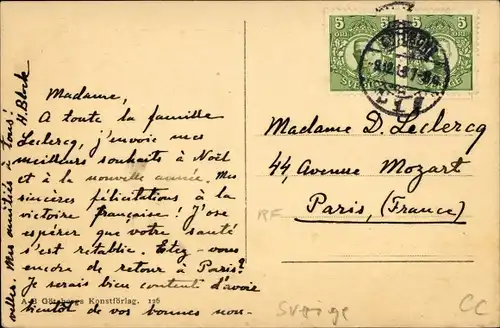 Madame,
A toute la famille
Leclercq, j'envoie mes
meilleurs souhaits à Noël
et à la nouvelle année. Mes
sincères félicitations à la
victoire française! J'ose
espérer que votre santé
s'est retablie. Etez-vous
encore de retour à Paris?
Je serais bien content d'avoir
bientôt de vos bonnes nou-
velles. Mes amitiés à tous!
H. Block
A-B Göteborgs Konstförlag. 126
5 5
Madame D. Leclercq
44, Avenue Mozart
Paris, (France)
RF
Sverige
CC